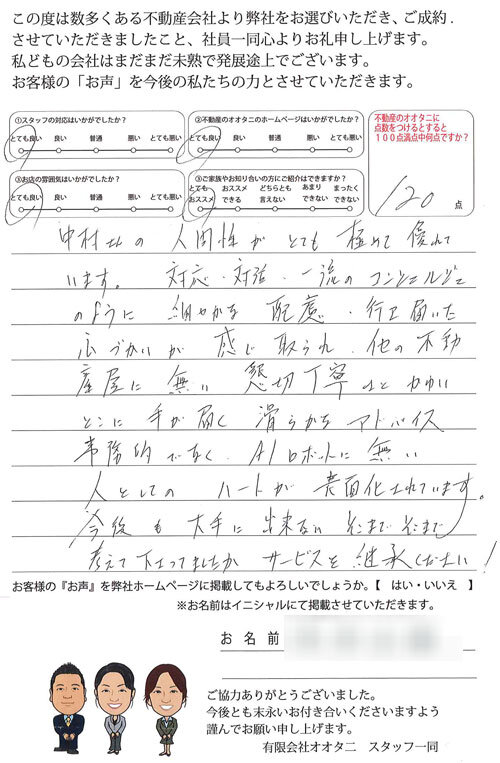 この度は数多くある不動産会社より弊社をお選びいただき、ご成約.
させていただきましたこと、社員一同心よりお礼申し上げます。
私どもの会社はまだまだ未熟で発展途上でございます。
お客様の「お声」を今後の私たちの力とさせていただきます。
①スタッフの対応はいかがでしたか？
とても良い 良い 普通 悪い とても悪い
②不動産のオオタニのホームページはいかがでしたか？
とても良い 良い 普通 悪い とても悪い
③お店の雰囲気はいかがでしたか？
とても良い 良い 普通 悪い とても悪い
③ご家族やお知り合いの方にご紹介はできますか？
とても オススメ どちらとも あまり まったく
オススメ できる 言えない できない できない
不動産のオオタニに
点数をつけるとすると
１００点満点中何点ですか？
120 点
中村さんの 人間性が とても 極めて 優れて
います。 対応・対話・一流の コンシェルジュ
のように 細やかな 配慮・行き届いた
心づかいが 感じ取られ、他の不動
産屋に 無い 懇切丁寧さと かゆい
とこに 手が届く 滑らかな アドバイス
事務的でなく、AIロボットに 無い
人としての ハートが 表面化されています。
今後も 大手に 出来ない そこまで そこまで
考えて 下さってましたか サービスを 継承ください！
お客様の『お声』を弊社ホームページに掲載してもよろしいでしょうか。【 はい・いいえ 】
※お名前はイニシャルにて掲載させていただきます。
お 名 前
ご協力ありがとうございました。
今後とも末永いお付き合いくださいますよう
謹んでお願い申し上げます。
有限会社オオタニ スタッフ一同